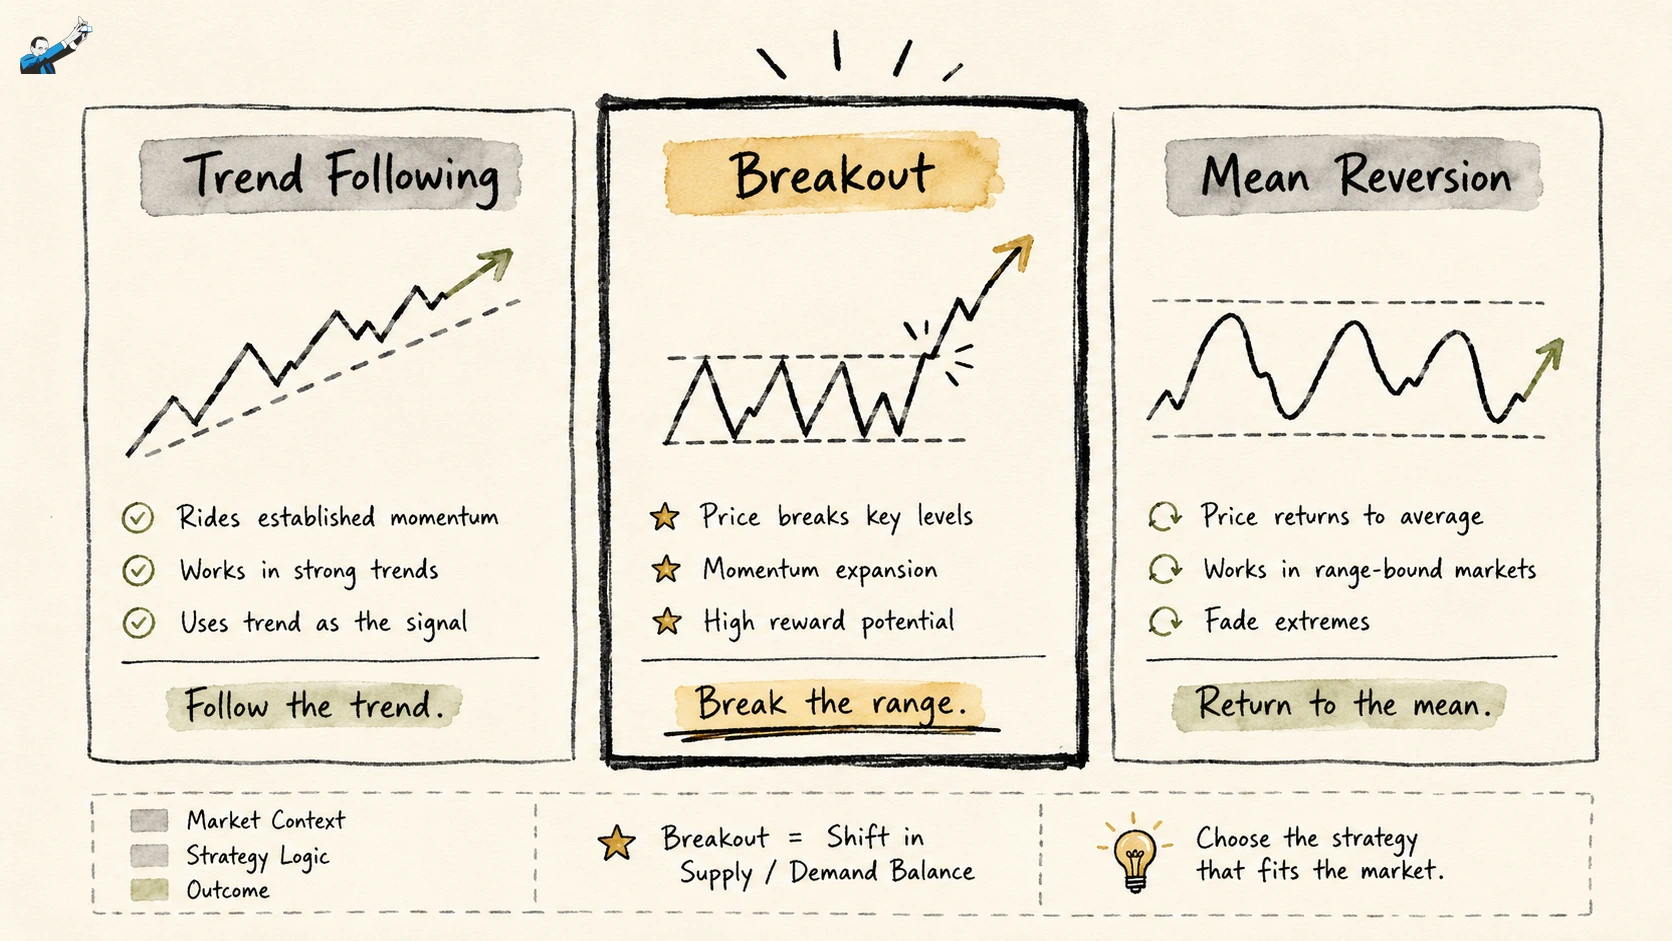 Trend Following
Rides established momentum
Works in strong trends
Uses trend as the signal
Follow the trend.
Breakout
Price breaks key levels
Momentum expansion
High reward potential
Break the range.
Mean Reversion
Price returns to average
Works in range-bound markets
Fade extremes
Return to the mean.
Market Context
Strategy Logic
Outcome
Breakout = Shift in
Supply / Demand Balance
Choose the strategy
that fits the market.